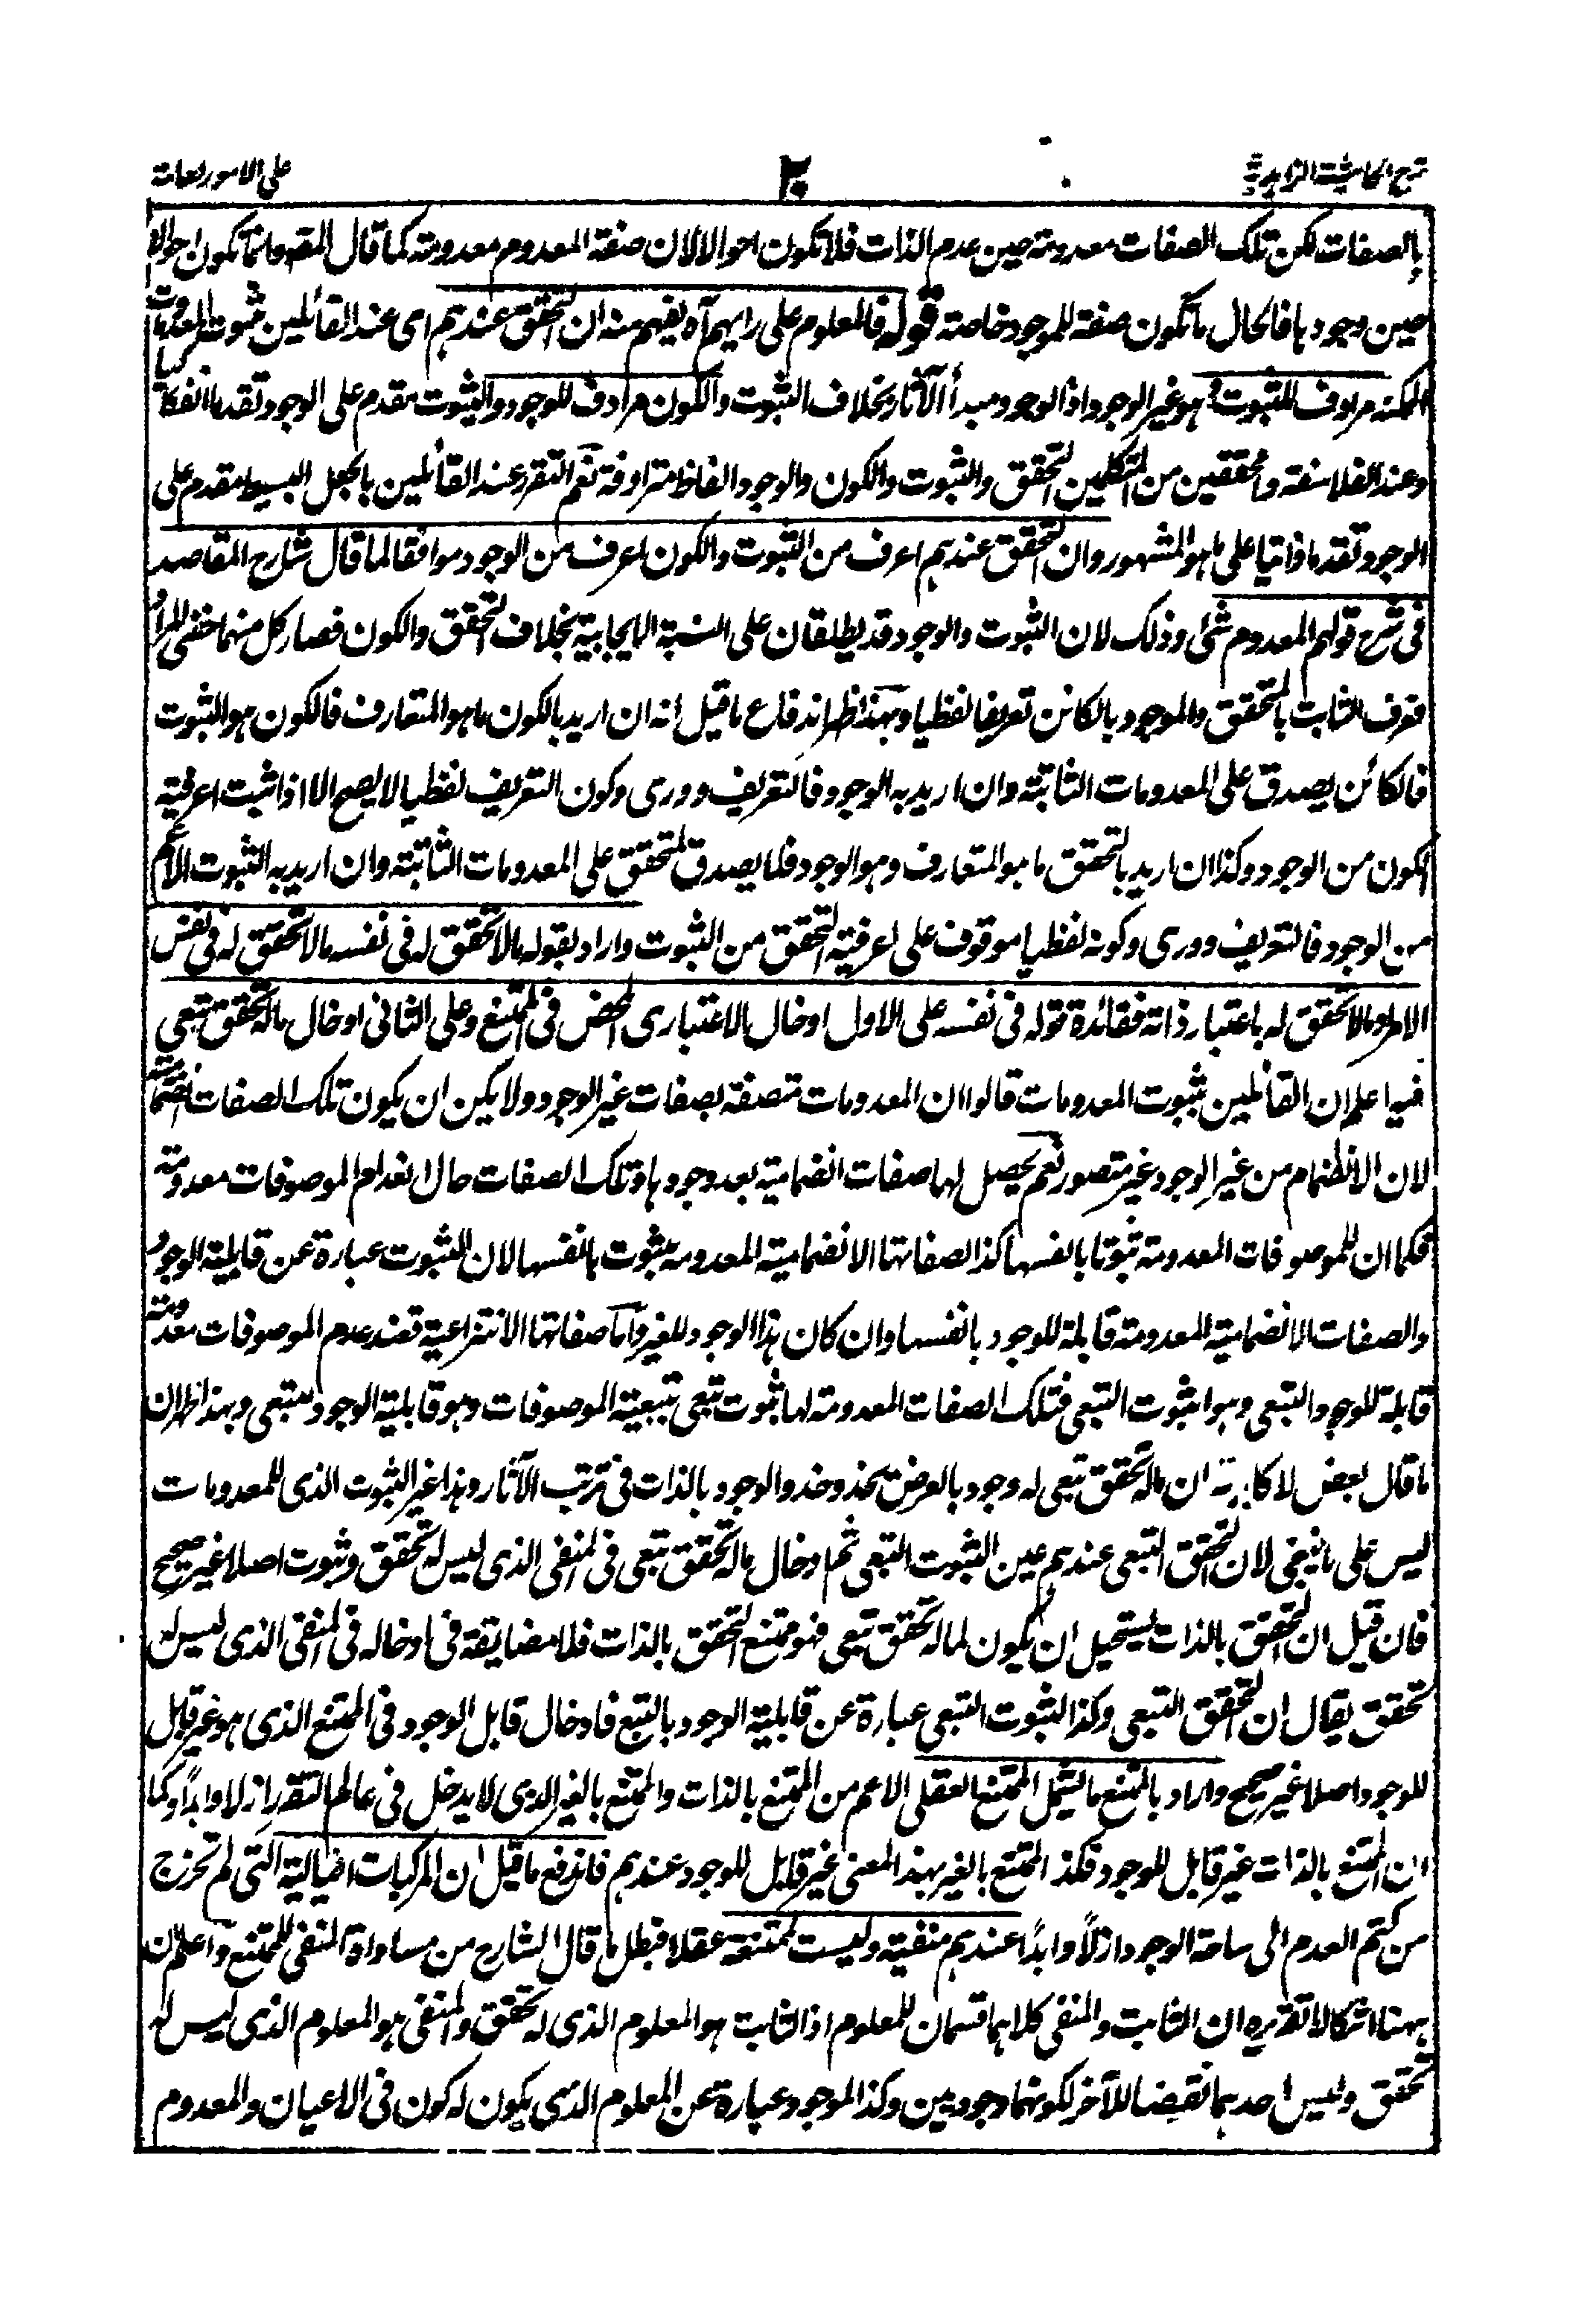 شرح الحاشية الزاهدية ٣٠ على الامور العامة
بالصفات لكن تلك الصفات معدومة حين عدم الذات فلا تكون احوالا لان صفة المعدوم معدومة كما قال المصـ وانما تكون احوالا
حين وجودها فالحال ما تكون صفة للموجود خاصة قوله فالمعلوم على رايهم آه يفهم منه ان التحقق عندهم اى عند القائلين بثبوت المعدومات
الممكنة مرادف للثبوت وهو غير الوجود اذ الوجود مبدأ الآثار بخلاف الثبوت والكون مرادف للوجود والثبوت مقدم على الوجود تقدما انفكاكيا
وعند الفلاسفة والمحققين من المتكلمين التحقق والثبوت والكون والوجود الفاظ مترادفة نعم التقرر عند القائلين بالجعل البسيط مقدم على
الوجود تقدما ذاتيا على ما هو المشهور وان التحقق عندهم اعرف من الثبوت والكون اعرف من الوجود موافقا لما قال شارح المقاصد
فى شرح قولهم المعدوم شئ وذلك لان الثبوت والوجود قد يطلقان على النسبة الايجابية بخلاف التحقق والكون فصار كل منهما اخفى المراد
فعرف الثابت بالمتحقق والموجود بالكائن تعريفا لفظيا وبهذا ظهر اندفاع ما قيل انه ان اريد بالكون ما هو المتعارف فالكون هو الثبوت
فالكائن يصدق على المعدومات الثابتة وان اريد به الوجود فالتعريف دورى وكون التعريف لفظيا لا يصح الا اذا ثبت اعرفية
الكون من الوجود وكذا ان اريد بالتحقق ما هو المتعارف وهو الوجود فلا يصدق المتحقق على المعدومات الثابتة وان اريد به الثبوت الاعم
من الوجود فالتعريف دورى وكونه لفظيا موقوف على اعرفية التحقق من الثبوت واراد بقوله ما لا تحقق له فى نفسه ما لا تحقق له فى نفس
الامر او ما لا تحقق له باعتبار ذاته ففائدة قوله فى نفسه على الاول ادخال الاعتبارى المحض فى الممتنع وعلى الثانى ادخال ما له تحقق تبعى
فيه اعلم ان القائلين بثبوت المعدومات قالوا ان المعدومات متصفة بصفات غير الوجود ولا يمكن ان يكون تلك الصفات انضمامية
لان الانضمام من غير الوجود غير متصور نعم يحصل لها صفات انضمامية بعد وجودها وتلك الصفات حال انعدام الموصوفات معدومة
فكما ان للموصوفات المعدومة ثبوتا بانفسها كذا لصفاتها الانضمامية المعدومة ثبوت بانفسها لان الثبوت عبارة عن قابلية الوجود
والصفات الانضمامية المعدومة قابلة للوجود بانفسها وان كان هذا الوجود للغير واما صفاتها الانتزاعية فعند عدم الموصوفات معدومة
قابلة للوجود التبعى وهو الثبوت التبعى فتلك الصفات المعدومة لها ثبوت تبعى بتبعية الموصوفات وهو قابلية الوجود التبعى وبهذا ظهر ان
ما قال بعض الاكابر من ان ما له تحقق تبعى له وجود بالعرض يحذو حذو الوجود بالذات فى ترتب الآثار وهذا غير الثبوت الذى للمعدومات
ليس على ما ينبغى لان التحقق التبعى عندهم عين الثبوت التبعى ثم ادخال ما له تحقق تبعى فى المنفى الذى ليس له تحقق وثبوت اصلا غير صحيح
فان قيل ان التحقق بالذات يستحيل ان يكون لما له تحقق تبعى فهو ممتنع التحقق بالذات فلا مضايقة فى ادخاله فى المنفى الذى ليس له
تحقق يقال ان التحقق التبعى وكذا الثبوت التبعى عبارة عن قابلية الوجود بالتبع فادخال قابل الوجود فى الممتنع الذى هو غير قابل
للوجود اصلا غير صحيح واراد بالممتنع ما يشمل الممتنع العقلى الاعم من الممتنع بالذات والممتنع بالغير الذى لا يدخل فى عالم التقرر ازلا وابدا وكما
ان الممتنع بالذات غير قابل للوجود فكذا الممتنع بالغير بهذا المعنى غير قابل للوجود عندهم فاندفع ما قيل ان المركبات الخيالية التى لم تخرج
من كتم العدم الى ساحة الوجود ازلاً وابداً عندهم منفية وليست ممتنعة عقلا فبطل ما قال الشارح من مساواة المنفى للممتنع واعلم ان
ههنا اشكالا تقريره ان الثابت والمنفى كلاهما قسمان للمعلوم اذ الثابت هو المعلوم الذى له تحقق والمنفى هو المعلوم الذى ليس له
تحقق وليس احدهما نقيضا للآخر لكونهما وجوديين وكذا الموجود عبارة عن المعلوم الذى يكون له كون فى الاعيان والمعدوم